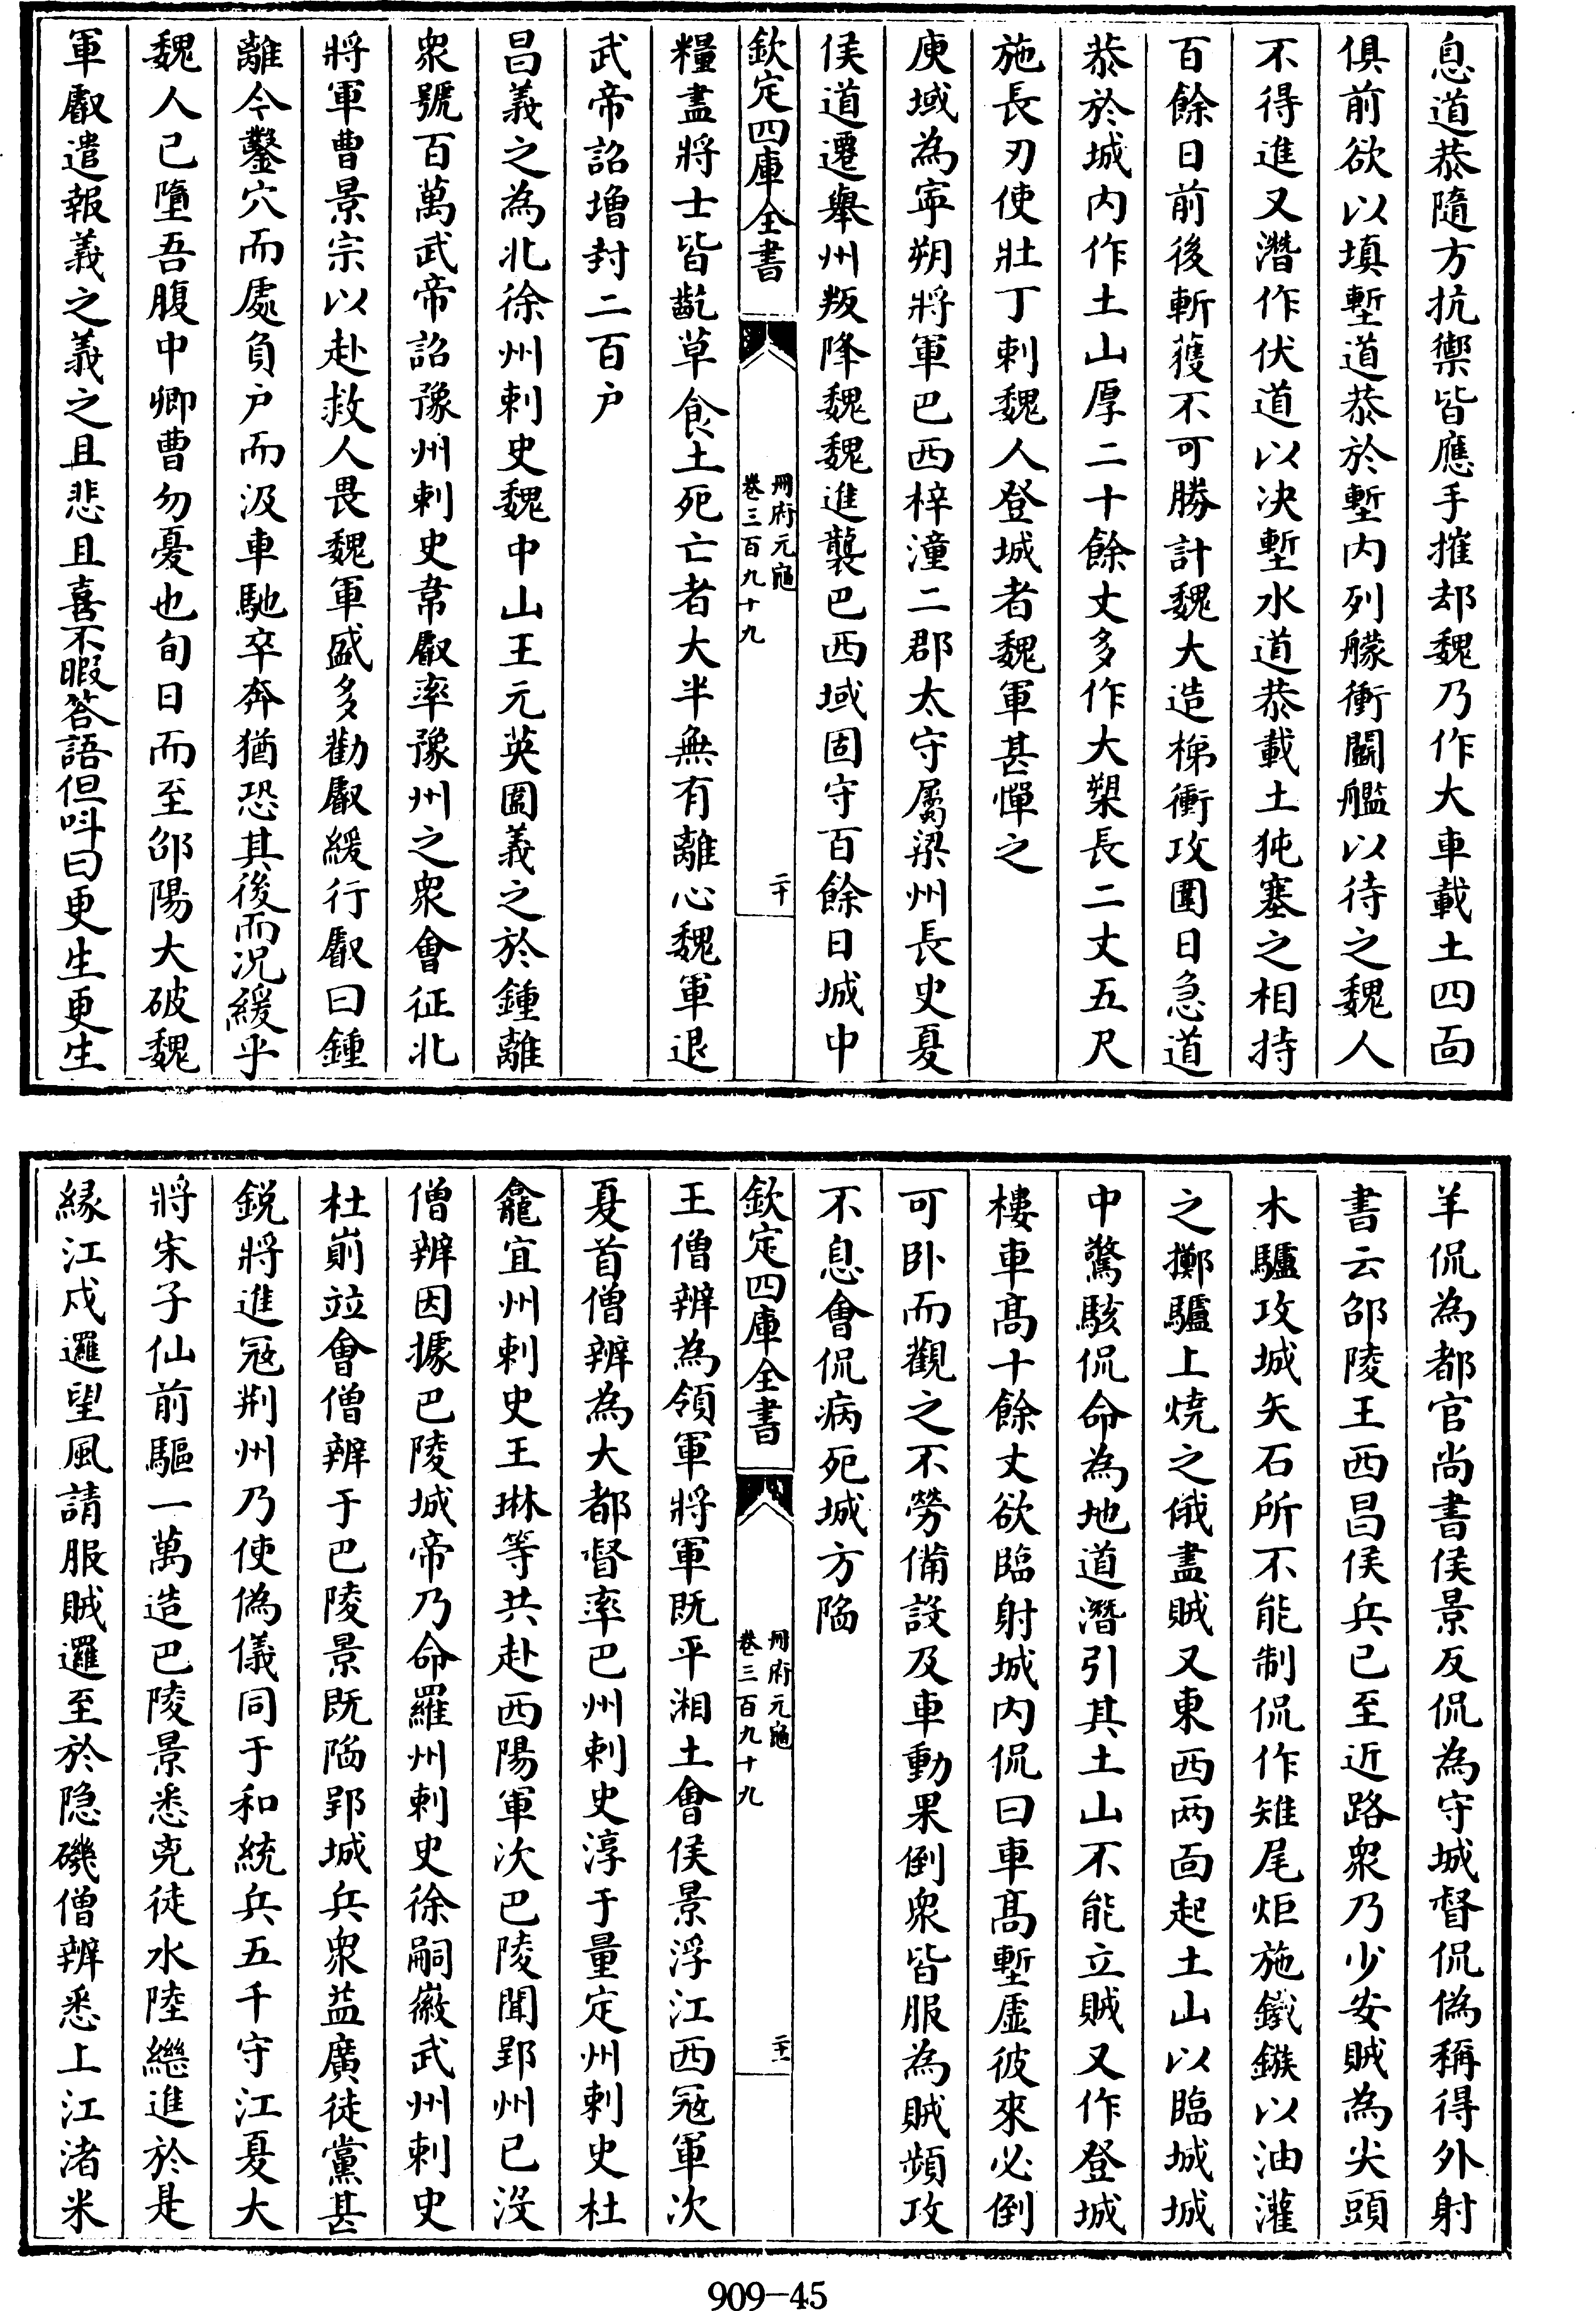 息道恭隨方抗禦皆應手摧却魏乃作大車載土四面
俱前欲以填塹道恭於塹内列艨衝鬬艦以待之魏人
不得進又潛作伏道以决塹水道恭載土㹠塞之相持
百餘日前後斬獲不可勝計魏大造梯衝攻圍日急道
恭於城内作土山厚二十餘丈多作大槊長二丈五尺
施長刃使壯丁刺魏人登城者魏軍甚憚之
庾域為寧朔將軍巴西梓潼二郡太守屬梁州長史夏
侯道遷舉州叛降魏魏進襲巴西域固守百餘日城中
欽定四庫全書
冊府元龜
卷三百九十九
二十
糧盡將士皆齕草食土死亡者大半無有離心魏軍退
武帝詔増封二百户
昌義之為北徐州刺史魏中山王元英圍義之於鍾離
衆號百萬武帝詔豫州刺史韋叡率豫州之衆會征北
將軍曹景宗以赴救人畏魏軍盛多勸叡緩行叡曰鍾
離今鑿穴而處負户而汲車馳卒奔猶恐其後而况緩乎
魏人已墮吾腹中卿曹勿憂也旬日而至邵陽大破魏
軍叡遣報義之義之且悲且喜不暇答語但呌曰更生更生
羊侃為都官尚書侯景反侃為守城督侃偽稱得外射
書云邵陵王西昌侯兵已至近路衆乃少安賊為尖頭
木驢攻城矢石所不能制侃作雉尾炬施鐵鏃以油灌
之擲驢上燒之俄盡賊又東西两面起土山以臨城城
中驚駭侃命為地道潛引其土山不能立賊又作登城
樓車髙十餘丈欲臨射城内侃曰車髙塹虚彼來必倒
可卧而觀之不勞備設及車動果倒衆皆服為賊頻攻
不息會侃病死城方陷
欽定四庫全書
冊府元龜
卷三百九十九
二十一
王僧辨為領軍將軍既平湘土會侯景浮江西冦軍次
夏首僧辨為大都督率巴州刺史淳于量定州刺史杜
龕宜州刺史王琳等共赴西陽軍次巴陵聞郢州已沒
僧辨因據巴陵城帝乃命羅州刺史徐嗣徽武州刺史
杜崱竝會僧辨于巴陵景既陷郢城兵衆益廣徒黨甚
鋭將進冦荆州乃使偽儀同于和統兵五千守江夏大
將宋子仙前驅一萬造巴陵景悉克徒水陸繼進於是
緣江戍邏望風請服賊邏至於隐磯僧辨悉上江渚米
909-45